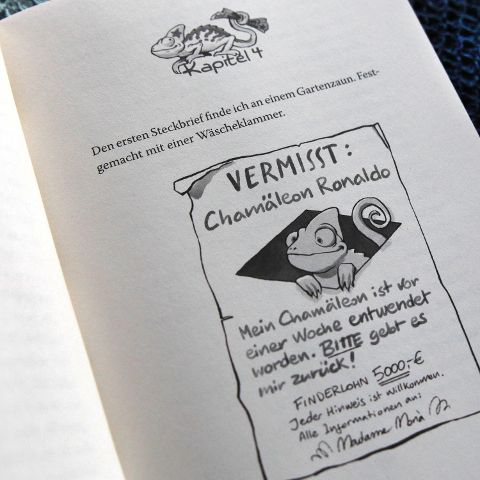 Kapitel 4
Den ersten Steckbrief finde ich an einem Gartenzaun. Fest-
gemacht mit einer Wäscheklammer.
VERMISST:
Chamäleon Ronaldo
Mein Chamäleon ist vor
einer Woche entwendet
worden. BITTE gebt es
mir zurück!
FINDERLOHN 5000,-€
Jeder Hinweis ist willkommen.
Alle Informationen an:
Madame Monà